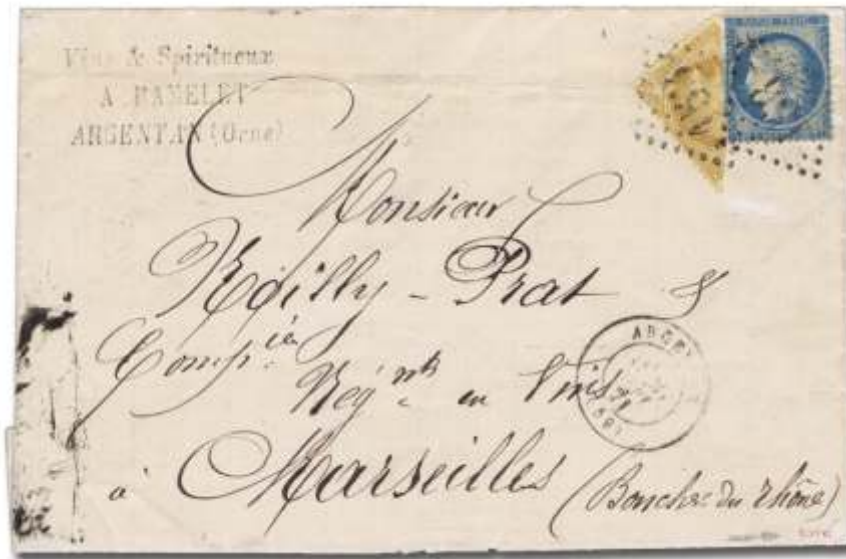 Vins & Spiritueux
A HAMELET
ARGENTAN (Orne)
Monsieur
Noilly-Prat &
Comp.ie
Nég.nts en Vins
à Marseilles (Bouches du rhône)
ARGEN